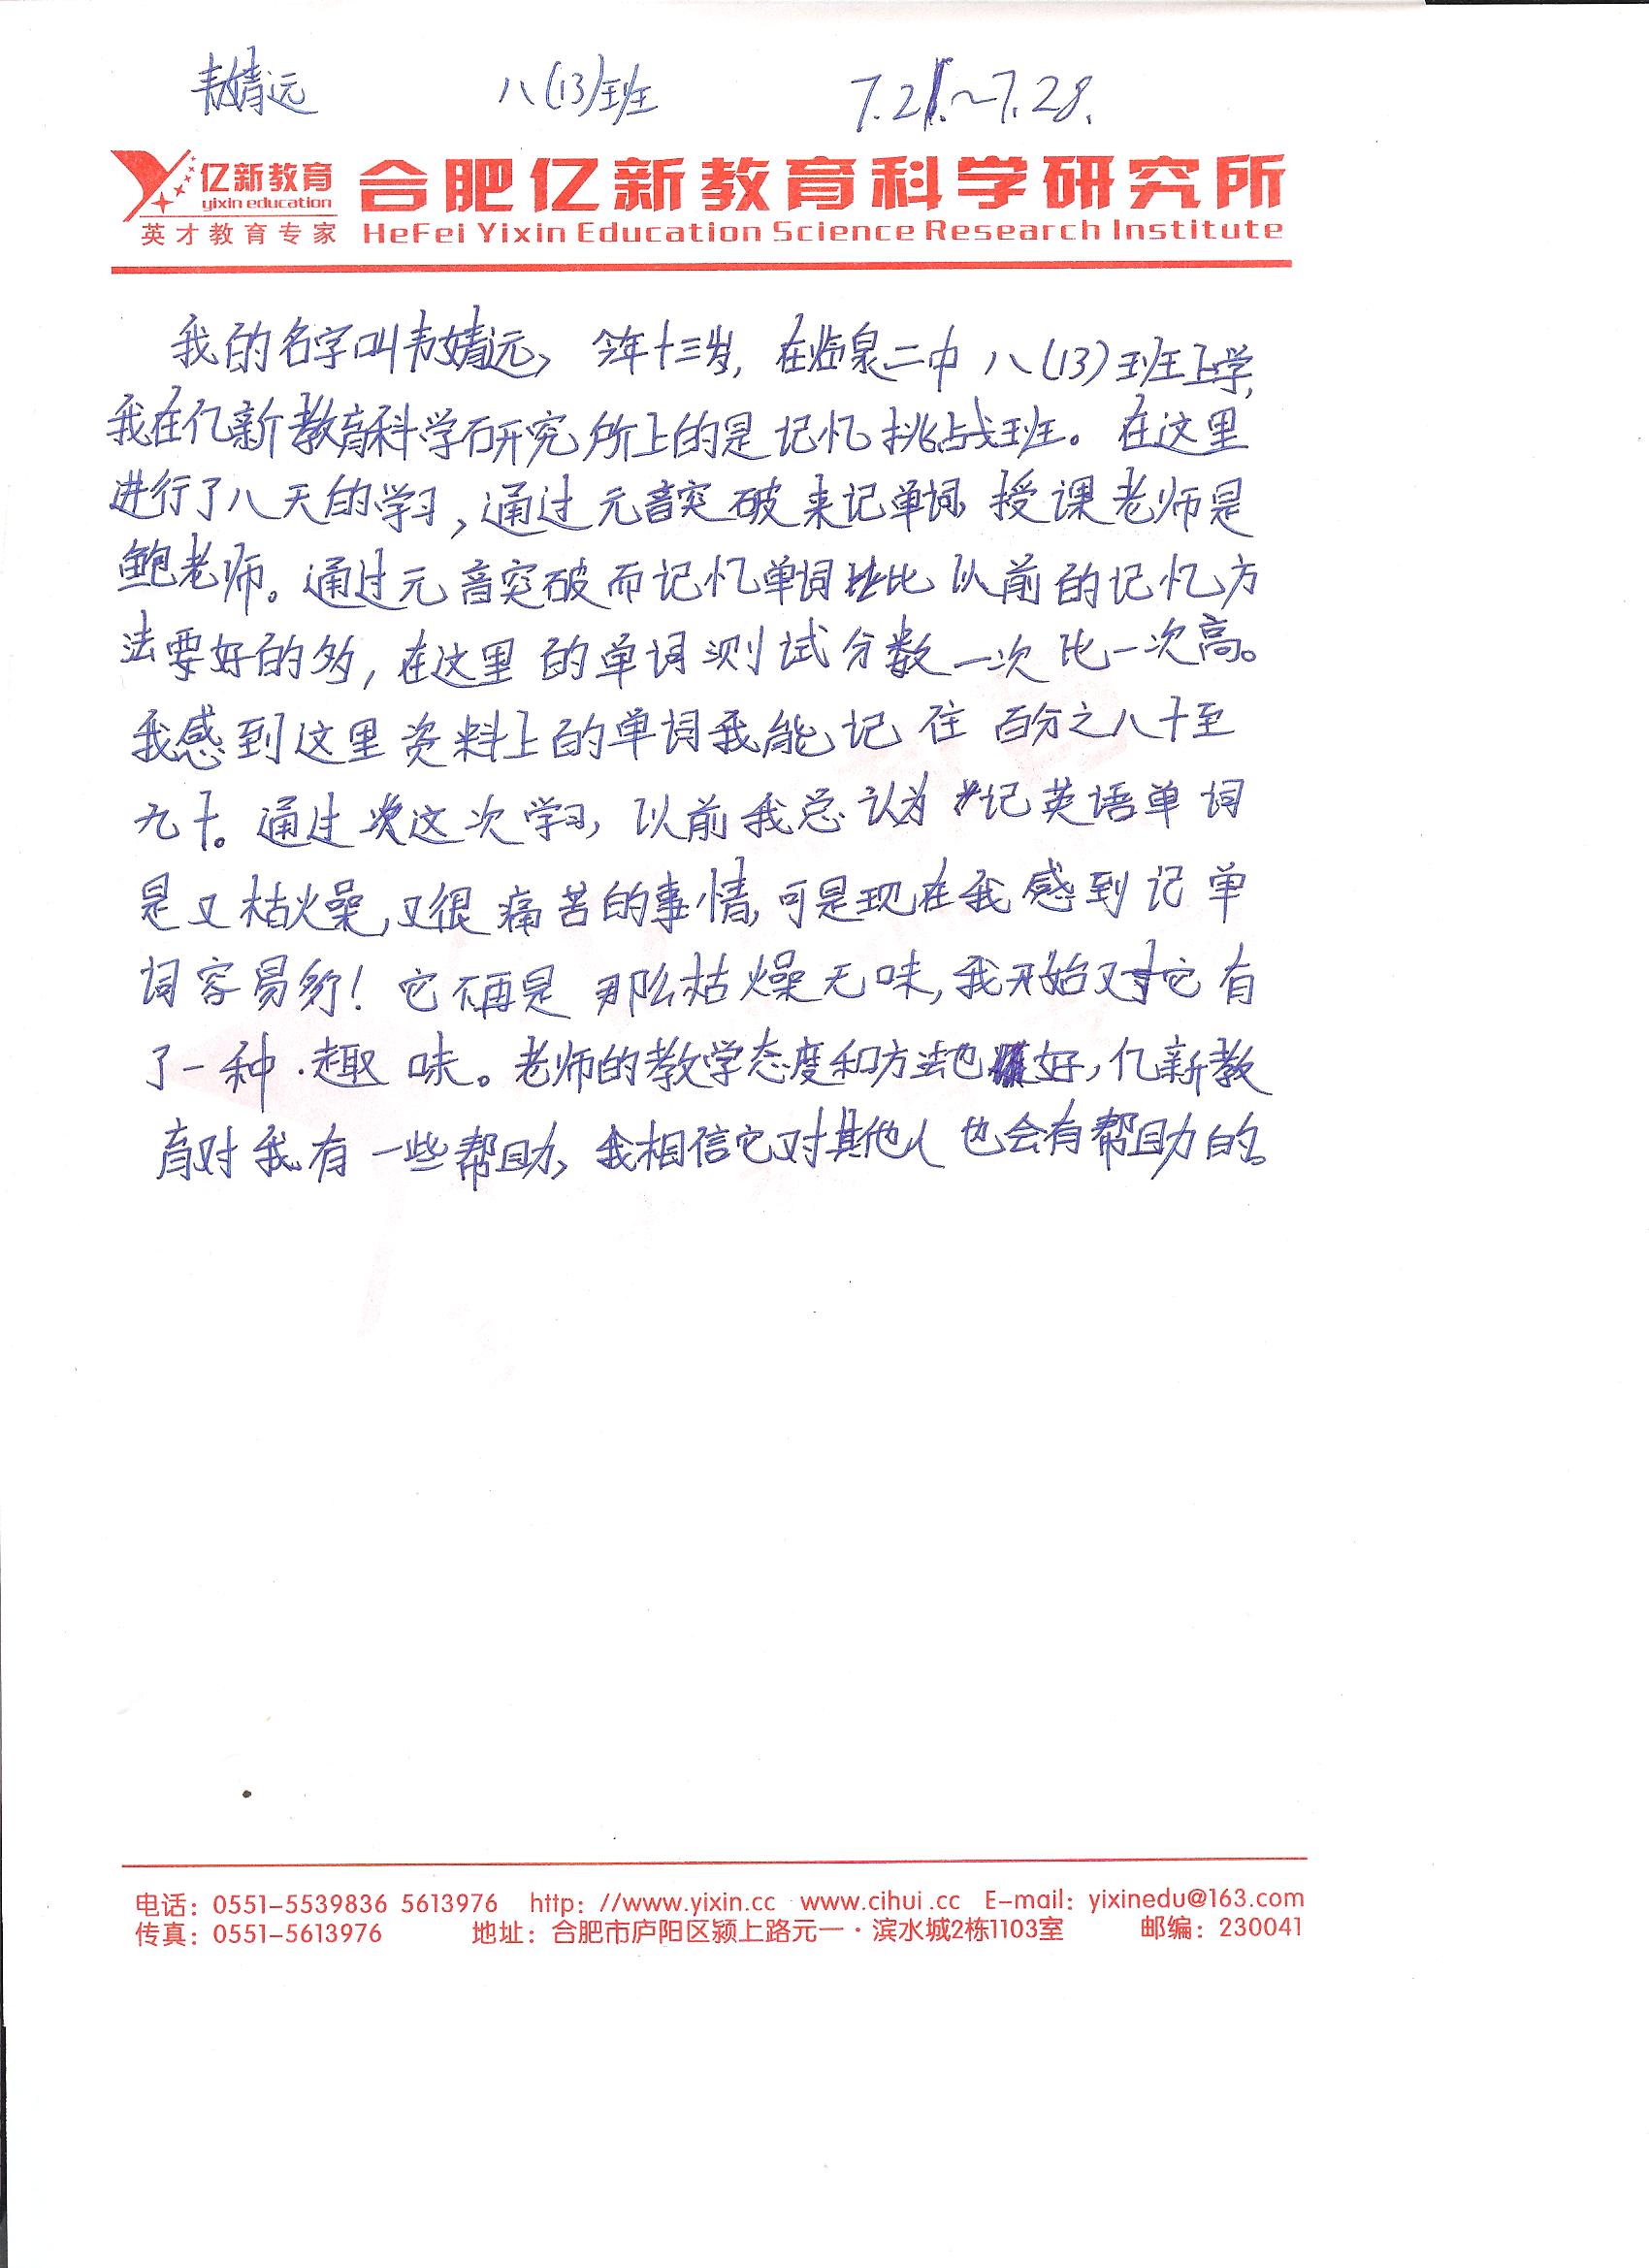 韦婧远 八(13)班 7.21.~7.28.
亿新教育 合肥亿新教育科学研究所
yixin education
英才教育专家 HeFei Yixin Education Science Research Institute
我的名字叫韦婧远，今年十三岁，在临泉二中八(13)班上学,
我在亿新教育科学研究所上的是记忆挑战班。在这里
进行了八天的学习,通过元音突破来记单词，授课老师是
鲍老师。通过元音突破而记忆单词比以前的记忆方
法要好的多,在这里的单词测试分数一次比一次高。
我感到这里资料上的单词我能记住百分之八十至
九十。通过这次学习,以前我总认为记英语单词
是又枯燥,又很痛苦的事情,可是现在我感到记单
词容易多!它不再是那么枯燥无味,我开始对它有
了一种趣味。老师的教学态度和方法也好,亿新教
育对我有一些帮助,我相信它对其他人也会有帮助的。
电话：0551-5539836 5613976 http：//www.yixin.cc www.cihui.cc E-mail：yixinedu@163.com
传真：0551-5613976 地址：合肥市庐阳区颍上路元一·滨水城2栋1103室 邮编：230041